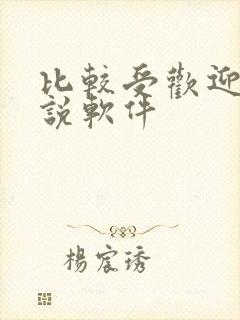 比較受歡迎
說軟件
楊宸琇